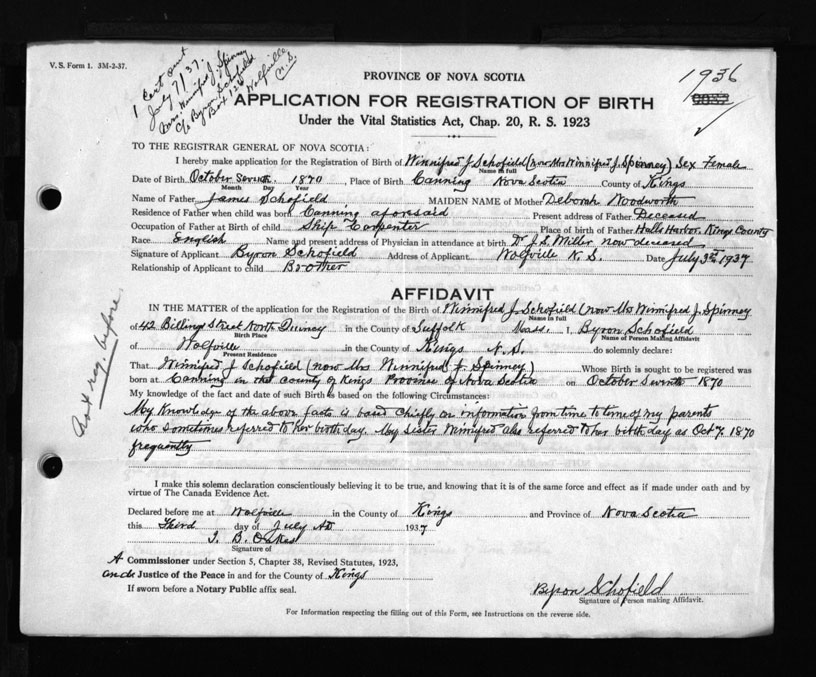 V. S. Form 1. 3M-2-37.
1 Cert sent
July 7/37.
Mrs. Winnifred J. Spinney
c/o Byron Schofield
Box 126
Wolfville
N.S.
1936
PROVINCE OF NOVA SCOTIA
APPLICATION FOR REGISTRATION OF BIRTH
Under the Vital Statistics Act, Chap. 20, R. S. 1923
TO THE REGISTRAR GENERAL OF NOVA SCOTIA:
I hereby make application for the Registration of Birth of Winnifred J. Schofield (now Mrs Winnifred J. Spinney) Sex Female
Name in full
Date of Birth October Seventh 1870, Place of Birth Canning Nova Scotia County of Kings
Month Day Year
Name of Father James Schofield MAIDEN NAME of Mother Deborah Woodworth
Residence of Father when child was born Canning aforesaid Present address of Father Deceased
Occupation of Father at Birth of child Ship Carpenter Place of birth of Father Halls Harbor, Kings County
Race English Name and present address of Physician in attendance at birth Dr J. S. Miller now deceased
Signature of Applicant Byron Schofield Address of Applicant Wolfville N. S. Date July 3rd 1937
Relationship of Applicant to child Brother
AFFIDAVIT
IN THE MATTER of the application for the Registration of the Birth of Winnifred J. Schofield (now Mrs Winnifred J. Spinney
Name in full
of 42 Billings Street North Quincy in the County of Suffolk Mass. I, Byron Schofield
Birth Place Name of Person Making Affidavit
of Wolfville in the County of Kings N.S. do solemnly declare:
Present Residence
That Winnifred J Schofield (now Mrs Winnifred J. Spinney) Whose Birth is sought to be registered was
born at Canning in the County of Kings Province of Nova Scotia on October Seventh 1870
My knowledge of the fact and date of such Birth is based on the following Circumstances:
My Knowledge of the above facts is based Chiefly on information from time to time of my parents
who sometimes referred to her birthday. My sister Winnifred also referred to her birthday as Oct 7. 1870
frequently
Not reg. before
I make this solemn declaration conscientiously believing it to be true, and knowing that it is of the same force and effect as if made under oath and by
virtue of The Canada Evidence Act.
Declared before me at Wolfville in the County of Kings and Province of Nova Scotia
this Third day of July AD 1937
B. Oakes
Signature of
A Commissioner under Section 5, Chapter 38, Revised Statutes, 1923,
and a Justice of the Peace in and for the County of Kings
If sworn before a Notary Public affix seal.
Byron Schofield
Signature of Person making Affidavit.
For Information respecting the filling out of this Form, see Instructions on the reverse side.